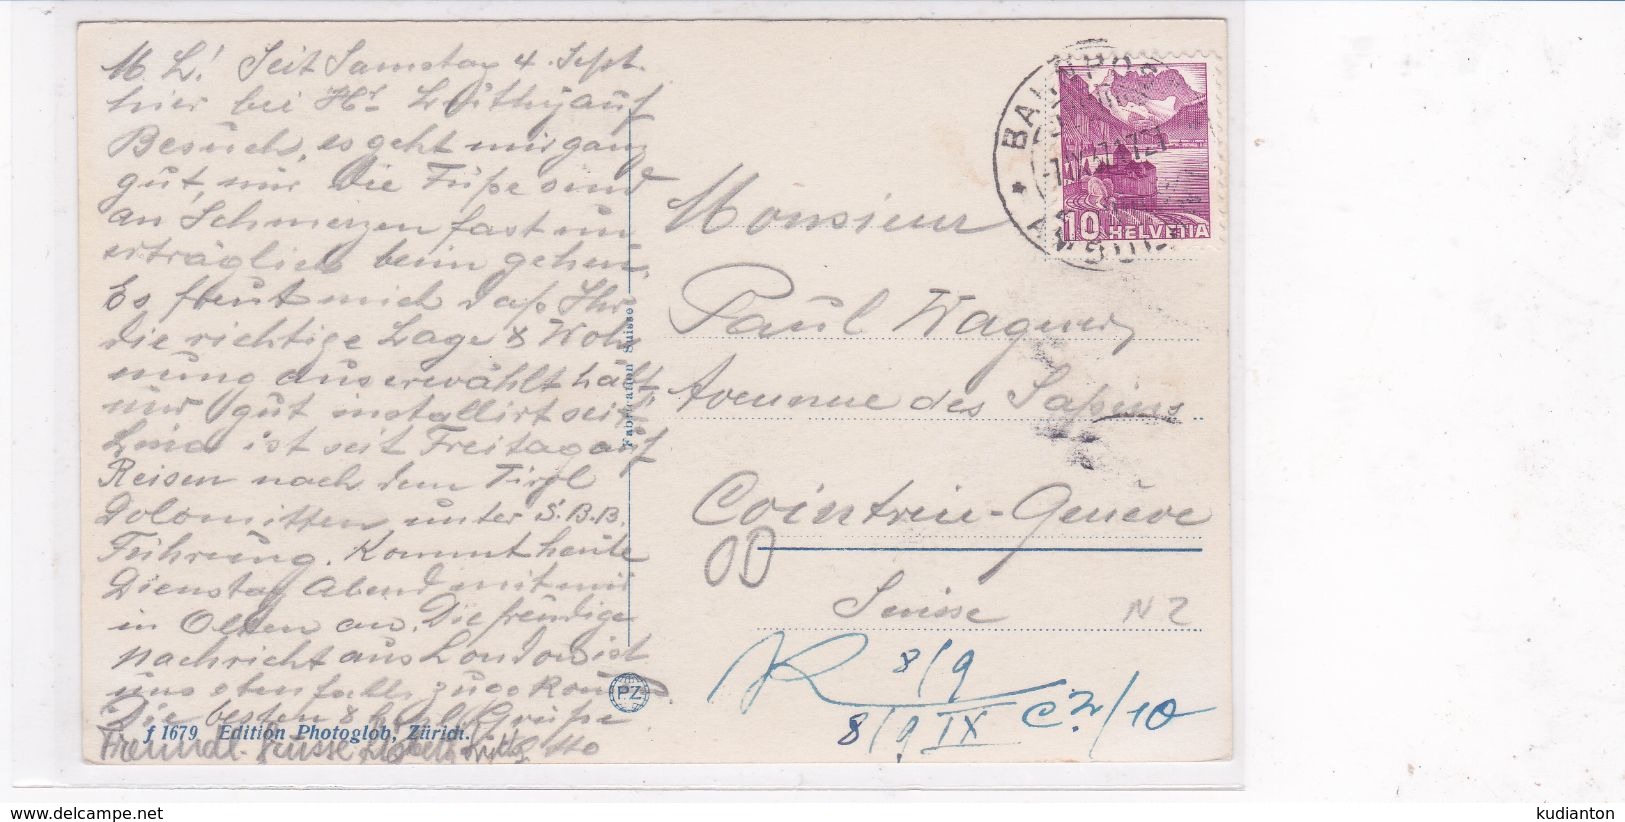 M. L.! Seit Samstag 4. Sept.
hier bei Hr auf
Besuch, es geht mir ganz
gut, nur die Füße sind
an Schmerzen fast un
erträglich beim gehen.
Es freut mich daß Ihr
die richtige Lage & Woh
nung auserwählt habt
und gut installirt seit
Lina ist seit Freitag auf
Reisen nach dem Tirol
Dolomitten, unter S.B.B.
Führung. Kommt heute
Dienstag Abend mit mir
in Olten an. Die freudige
Nachricht aus London ist
uns ebenfalls
Die besten & Grüße
Freundl. Grüsse
f 1679 Edition Photoglob, Zürich.
Fabrication Suisse
PZ
BAHNPOST
AMBULANT
10 HELVETIA
Monsieur
Paul Wagner
Avenue des Sapins
Cointrin-Genève
Suisse
N 2
8/9
8/9 IX
kudianton